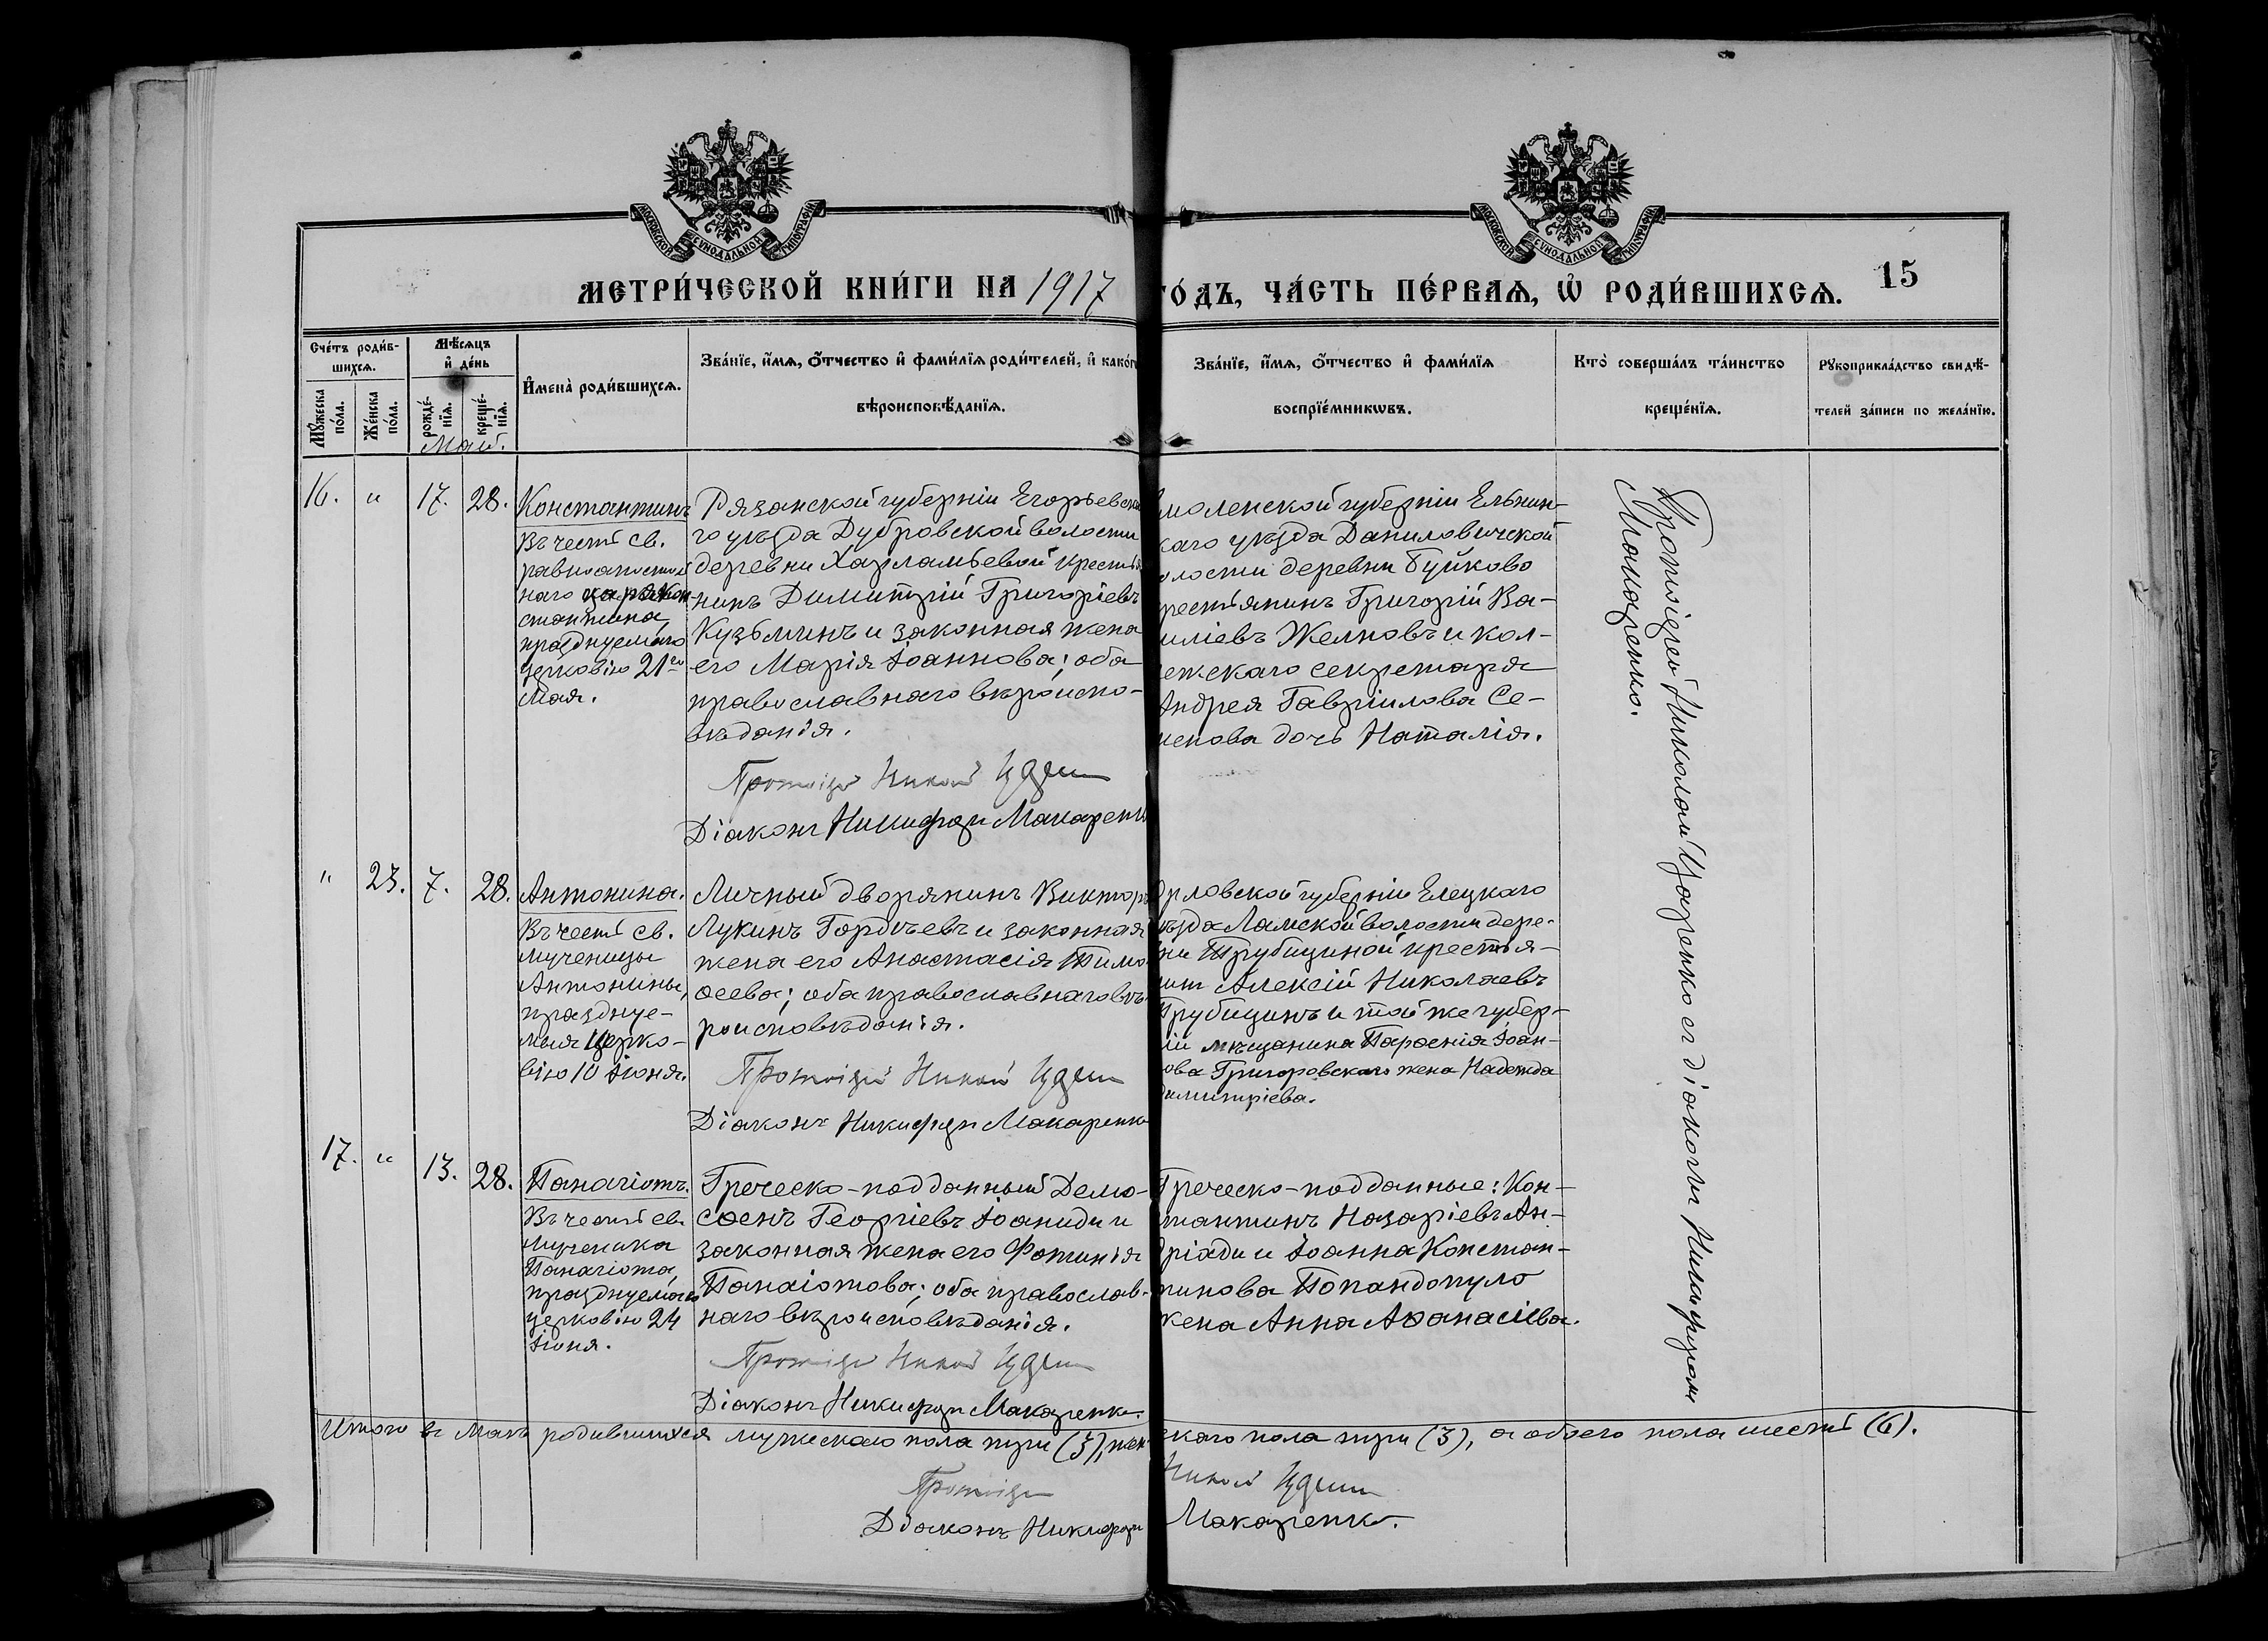 МОСКОВСКОЙ СУНОДАЛЬНОЙ ТИПОГРАФІИ
МОСКОВСКОЙ СУНОДАЛЬНОЙ ТИПОГРАФІИ
МЕТРИ́ЧЕСКОЙ КНИ́ГИ НА 1917
ГО́ДЪ, ЧА́СТЬ ПЕ́РВАѦ, Ѡ РОДИ́ВШИХСѦ.
15
Сче́тъ роди́в-
шихсѧ.
Мѣ́сѧцъ
и҆ де́нь
Мꙋ́жеска
по́ла.
Же́нска
по́ла.
рожде́-
нїѧ.
креще́-
нїѧ.
И҆мена̀ роди́вшихсѧ.
Зва́нїе, и҆́мѧ, ѻ҆́тчество и҆ фами́лїѧ роди́телей, и҆ како́г
вѣроисповѣ́данїѧ.
Зва́нїе, и҆́мѧ, ѻ҆́тчество и҆ фами́лїѧ
воспрїе́мникѡвъ.
Кто̀ соверша́лъ та́инство
креще́нїѧ.
Рꙋкоприкла́дство свидѣ́-
телей за́писи по жела́нїю.
Май.
16. " 17. 28.
Константинъ
Въ честь св.
равноапостоль
наго царя Кон-
стантина,
празднуемаго
церковію 21го
Мая.
Рязанской губерніи Егорьевска
го уѣзда Дубровской волости
деревни Харламьевой крестья
нинъ Димитрій Григоріевъ
Кузьминъ и законная жена
его Марія Іоаннова; оба
православнаго вѣроиспо-
вѣданія.
Протоіерей Николай
Діаконъ Никифоръ Макаренко
моленской губерніи Ельнин-
каго уѣзда Даниловичской
олости деревни Буйково
рестьянинъ Григорій Ва-
иліевъ Желновъ и кол-
ежскаго секретаря
Андрея Гавріилова Се-
менова дочь Наталія.
Протоіерей Николай Царенко съ діакономъ Никифоромъ
Макаренко.
" 23. 7. 28.
Антонина.
Въ честь св.
мученицы
Антонины,
празднуе-
мыя Церко-
вію 10 Іюня.
Личный дворянинъ Викторъ
Лукинъ Гордѣевъ и законная
жена его Анастасія Тимо
ѳеева; оба православнаго вѣ-
роисповѣданія.
Протоіерей Николай
Діаконъ Никифоръ Макаренко
Орловской губерніи Елецкаго
ѣзда Ламской волости дере-
ни Трубициной крестья-
инъ Алексій Николаевъ
Трубицинъ и той же губер-
іи мѣщанина Парѳенія Іоан-
ова Григоровскаго жена Надежда
Димитріева.
17. " 13. 28.
Панагіотъ.
Въ честь св.
мученика
Панагіота,
празднуемаго
церковію 24
Іюня.
Греческо-подданный Демо-
сѳенъ Георгіевъ Іоаниди и
законная жена его Фотинія
Панаіотова; оба православ-
наго вѣроисповѣданія.
Протоіерей Николай
Діаконъ Никифоръ Макаренко.
Греческо-подданные: Кон-
тантинъ Назаріевъ Ан-
дріади и Іоанна Констан-
тинова Попандопуло
жена Анна Аѳанасіева.
Итого въ маѣ родившихся мужескаго пола три (3), жен-
скаго пола три (3), а обоего пола шесть (6).
Протоіерей Николай
Діаконъ Никифоръ Макаренко.